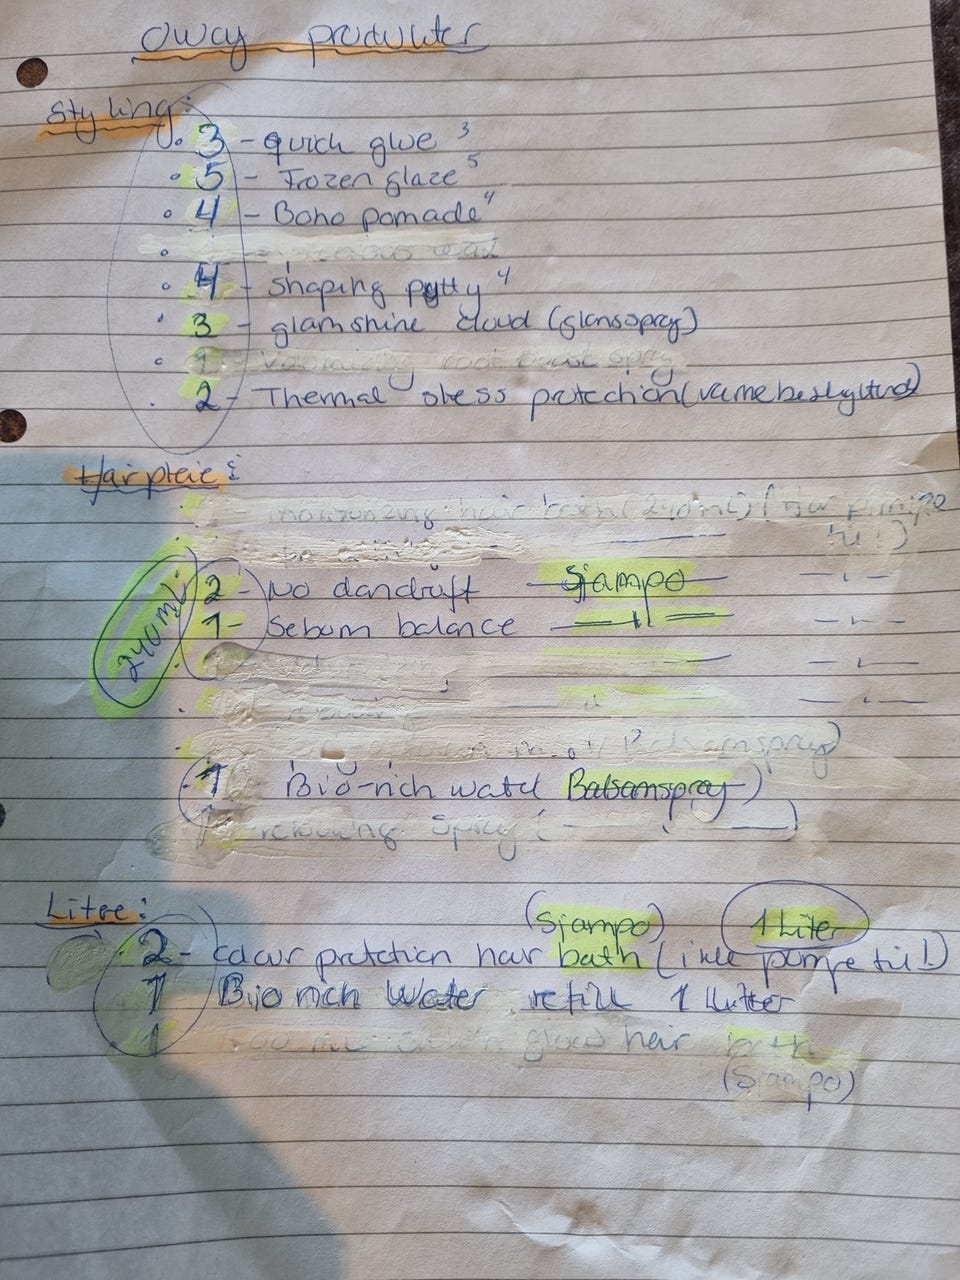 Oway produkter
Styling:
3 - quick glue 3
5 - Frozen glaze 5
4 - Boho pomade 4
4 - shaping putty 4
3 - glamshine cloud (glansspray)
2 - Thermal stress protection (varmebeskyttende)
Hårpleie:
moisturizing hair bath (240ml) (Har pumpe
til!)
240 ml
2 - No dandruff sjampo
1 - Sebum balance — 11 —
Balsamspray)
1 Bio-rich water Balsamspray)
Spray (
Litee:
(Sjampo) 1 Liter
2 - colour protection hair bath (ikke pumpe til!)
1 Bio rich Water refill 1 liter
1 glow hair bath
(Sjampo)